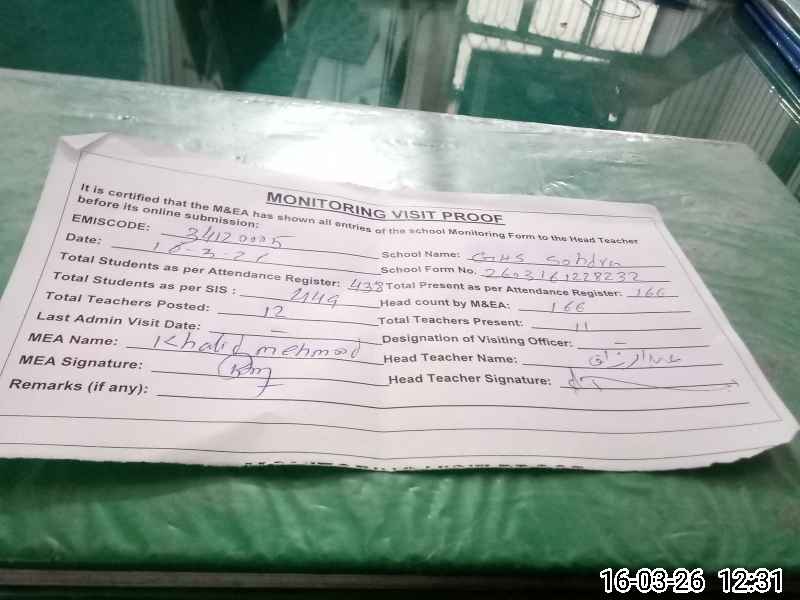 MONITORING VISIT PROOF
It is certified that the M&EA has shown all entries of the school Monitoring Form to the Head Teacher
before its online submission:
EMISCODE:
School Name: GHS Sohdra
Date:
School Form No. 2603161228232
Total Students as per Attendance Register: 438 Total Present as per Attendance Register: 166
Total Students as per SIS : Head count by M&EA: 166
Total Teachers Posted: 12 Total Teachers Present: 11
Last Admin Visit Date: – Designation of Visiting Officer: –
MEA Name: Khalid mehmood Head Teacher Name: عبدالرزاق
MEA Signature: Head Teacher Signature:
Remarks (if any):
16-03-26 12:31